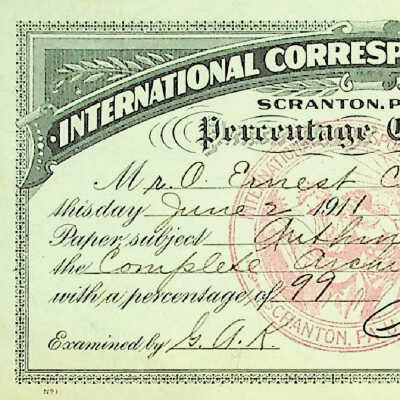 INTERNATIONAL CORRESP
SCRANTON, P
Percentage C
Mr. O. Ernest C
this day June 2 1911
Paper, subject Arithm
the Complete
with a percentage of 99
Examined by G. A. K.
SCRANTON, PA.
No 1